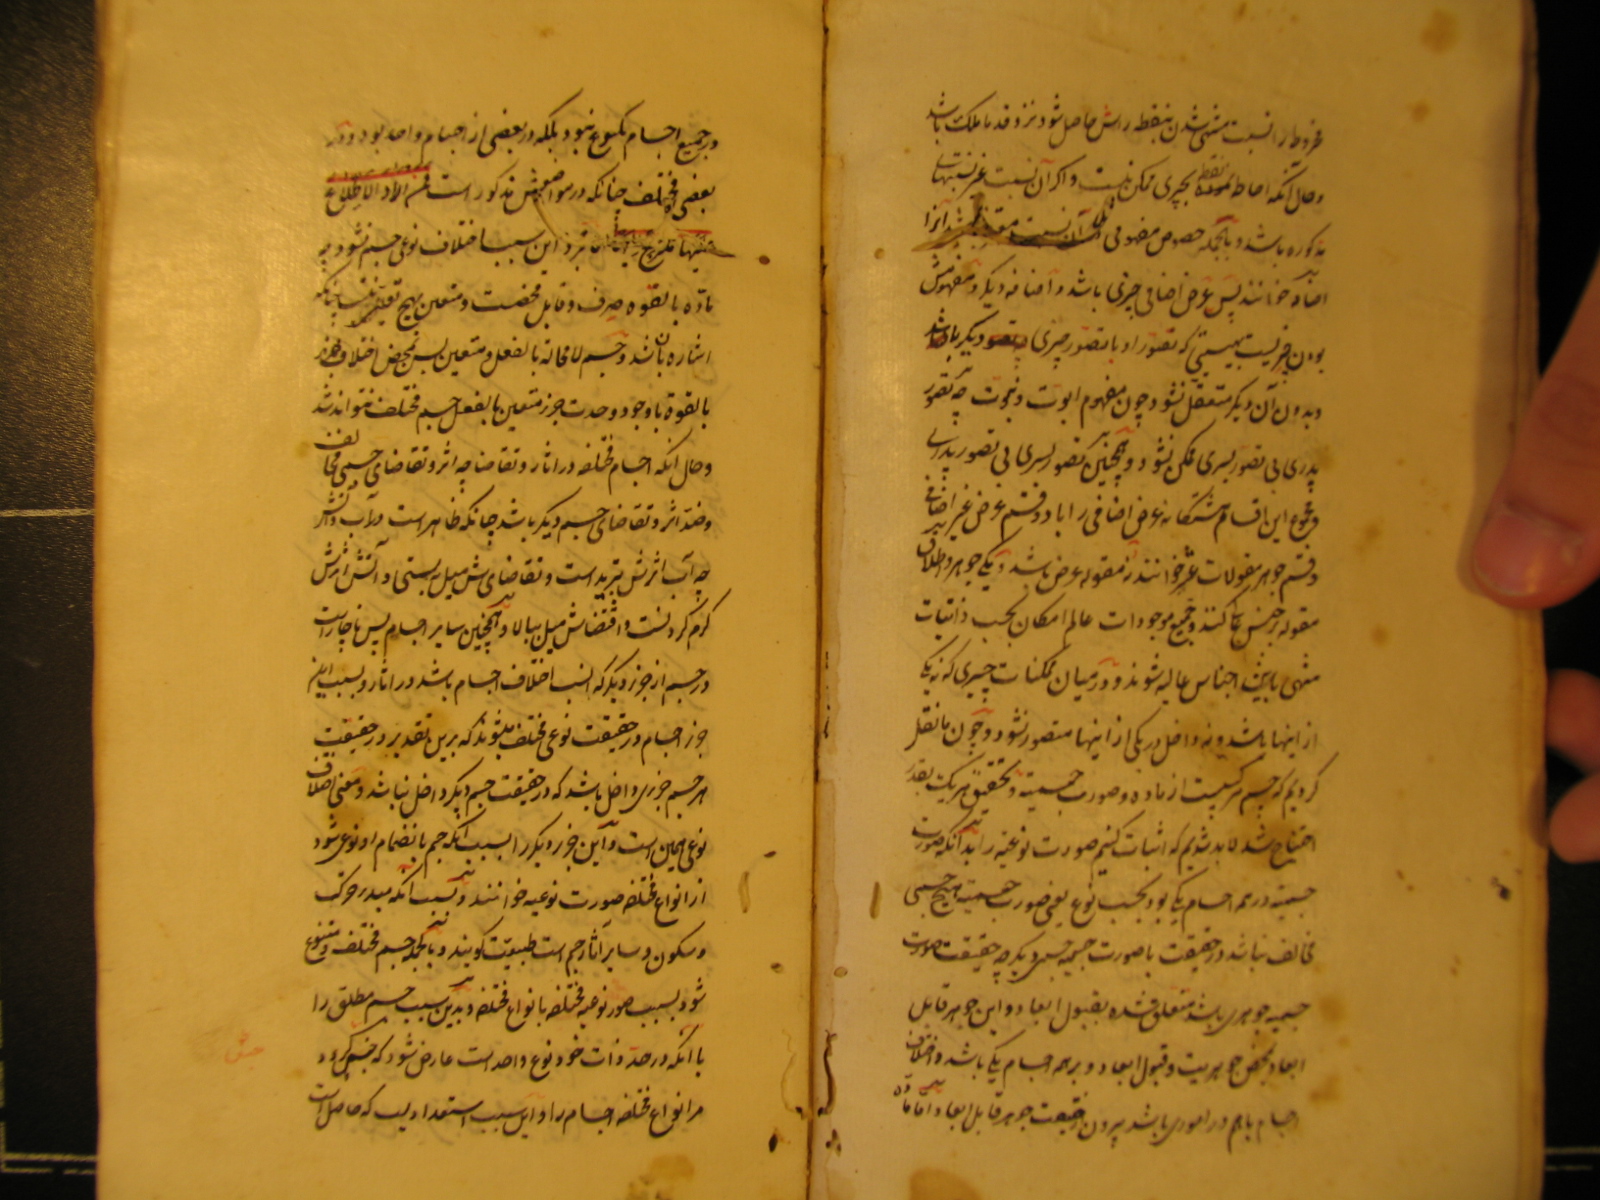 مخروط را نسبت منتهی شدن بنقطه راس حاصل شود نزد قدما ملک باشد
و حال آنکه احاطه نقطه بچیزی ممکن نیست و اگر آن نسبت غیر نسبتهای
مذکوره باشد و بالجمله خصوص مفهومی آن نسبت معتبر نباشد آنرا
اضافه خوانند پس عرض اضافی چیزی باشد و اضافه دیگر و مفهومش
بودن چیزیست بهیئتی که تصور او با تصور چیزی دیگر باشد
و بدون آن دیگر متعقل نشود چون مفهوم ابوت و بنوت چه تصور
پدری بی تصور پسری ممکن نشود و همچنین تصور پسری بی تصور پدری
و مجموع این اقسام هشتگانه عرض اضافی را با دو قسم عرض غیر اضافی
و قسم جوهر مقولات عشر خوانند نه مقوله عرض باشد و یکی جوهر و اطلاق
مقوله بر جنس عالی کنند و جمیع موجودات عالم امکان بحسب ذاتیات
منتهی باین اجناس عالیه شوند و در میان ممکنات چیزی که نه یکی
از اینها باشد و نه داخل در یکی از اینها متصور نشود و چون ما نقل
کردیم که جسم مرکبست از ماده و صورت جسمیه و تحقیق هر یک بقدر
احتیاج شد لابد شدیم که اثبات کنیم صورت نوعیه را بدانکه صورت
جسمیه در همه اجسام یکی بود بحسب نوع یعنی صورت جسمیه هیچ جسمی
مخالف نباشد در حقیقت با صورت جسمیه جسمی دیگر چه حقیقت صورت
جسمیه جوهری باشد متعلق شده بقبول ابعاد و این جوهر قابل
ابعاد بمحض جوهریت و قبول ابعاد در همه اجسام یکی باشد و اختلاف
اجسام باهم در اموری باشد بیرون از حقیقت جوهر قابل ابعاد اما ماده
در جمیع اجسام بیک نوع نبود بلکه در بعضی از اجسام واحد بود و در
بعضی مختلف چنانکه در مواضعش مذکور است فمن اراد الاطلاع
علیها فلیرجع الیها این سبب اختلاف نوعی جسم نشود چه
ماده بالقوه صرف و قابل محضست و متعین بهیچ تعین نیست چنانکه
اشاره بآن شد و جسم لا محاله بالفعل و متعین پس بمحض اختلاف جزء
بالقوة با وجود وحدت جزء متعین بالفعل جسم مختلف نتواند شد
و حال آنکه اجسام مختلفه در آثار و تقاضا چه اثر و تقاضای جسمی مخالف
و ضد اثر و تقاضای جسم دیگر باشد چنانکه ظاهر است در آب و آتش
چه آب اثرش تبرید است و تقاضایش میل به پستی و آتش اثرش
گرم کردنست و اقتضایش میل ببالا و همچنین سایر اجسام پس ناچار است
در جسم از جزء دیگر که سبب اختلاف اجسام باشد در آثار و بسبب این
جزء اجسام در حقیقت نوعی مختلف میشوند که برین تقدیر در حقیقت
هر جسم جزوی داخل باشد که در حقیقت جسم دیگر داخل نباشد و معنی اختلاف
نوعی همین است و این جزء دیگر را بسبب آنکه جسم بانضمام او نوعی شود
از انواع مختلفه صورت نوعیه خوانند و بسبب آنکه مبدء حرکت
و سکون و سایر آثار جسم است طبیعت گویند و بالجمله جسم مختلف و متنوع
شود بسبب صور نوعیه مختلفه بانواع مختلفه و بدین سبب جسم مطلق را
با آنکه در حد ذات خود نوع واحد است عارض شود که جنس گردد
مر انواع مختلفه اجسام را و این بسبب استعدادیست که حاصل است